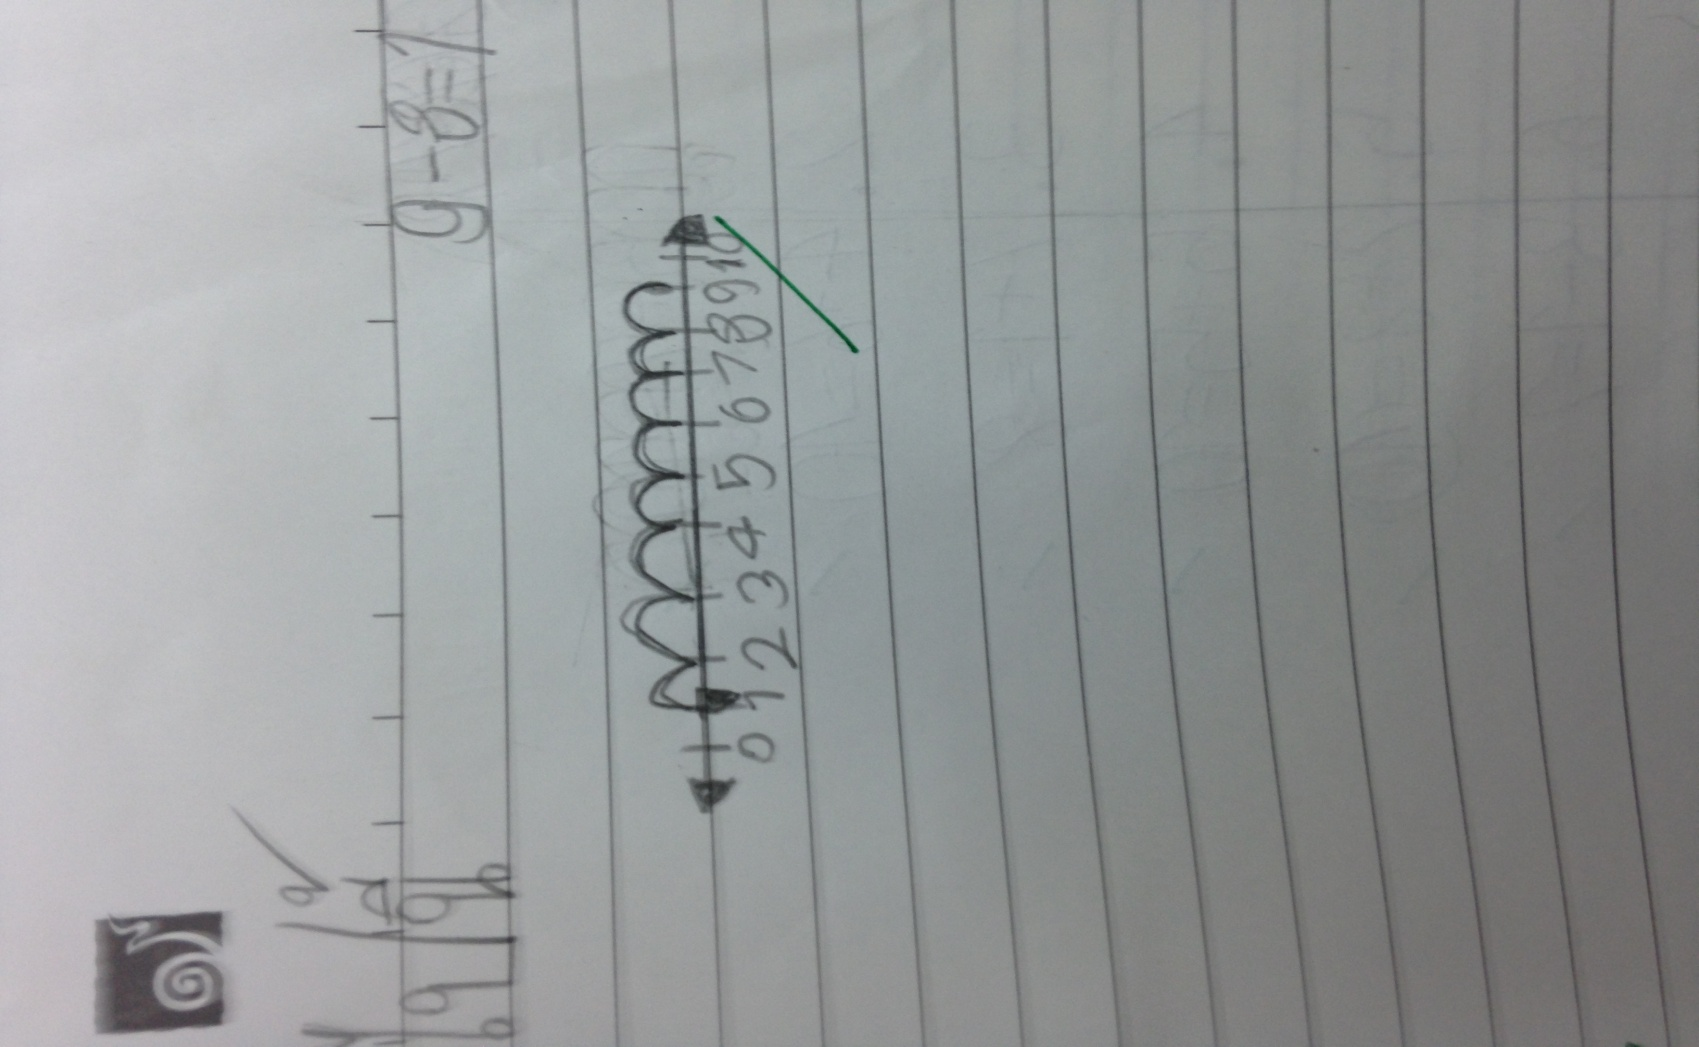 9-8=1
0 1 2 3 4 5 6 7 8 9 10